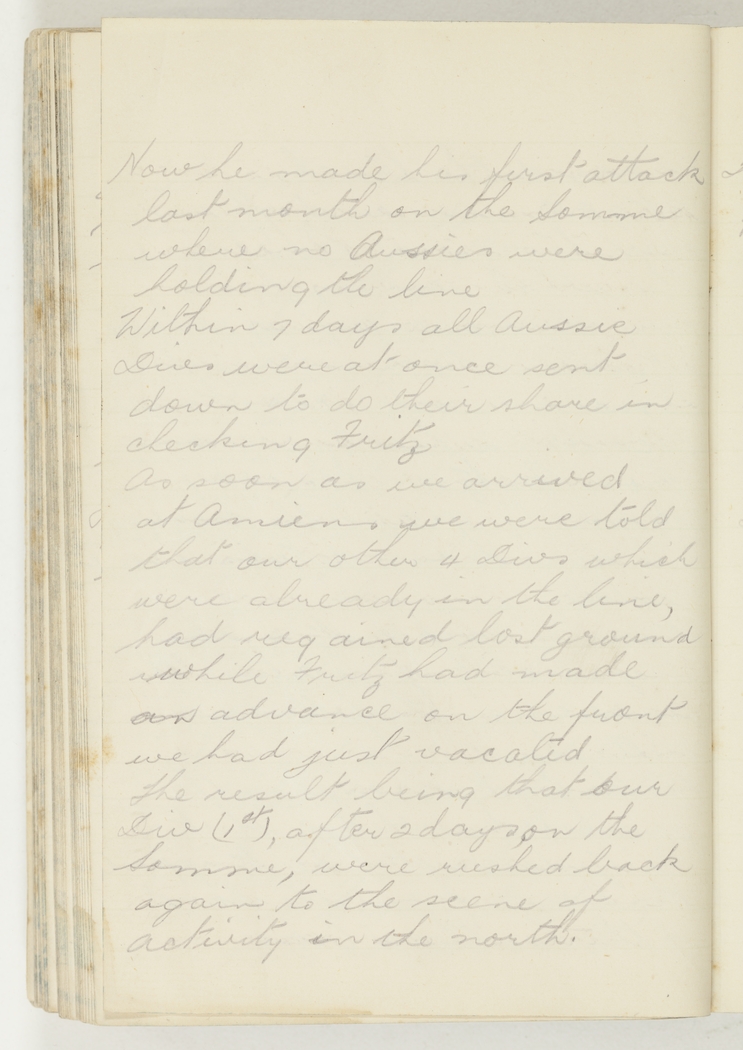 Now he made his first attack
last month on the Somme
where no Aussies were
holding the line
Within 7 days all Aussie
Divs were at once sent
down to do their share in
checking Fritz
As soon as we arrived
at Amiens we were told
that our other 4 Divs which
were already in the line,
had regained lost ground
while Fritz had made
an advance on the front
we had just vacated
The result being that our
Div (1st), after 2 days on the
Somme, were rushed back
again to the scene of
activity in the north.